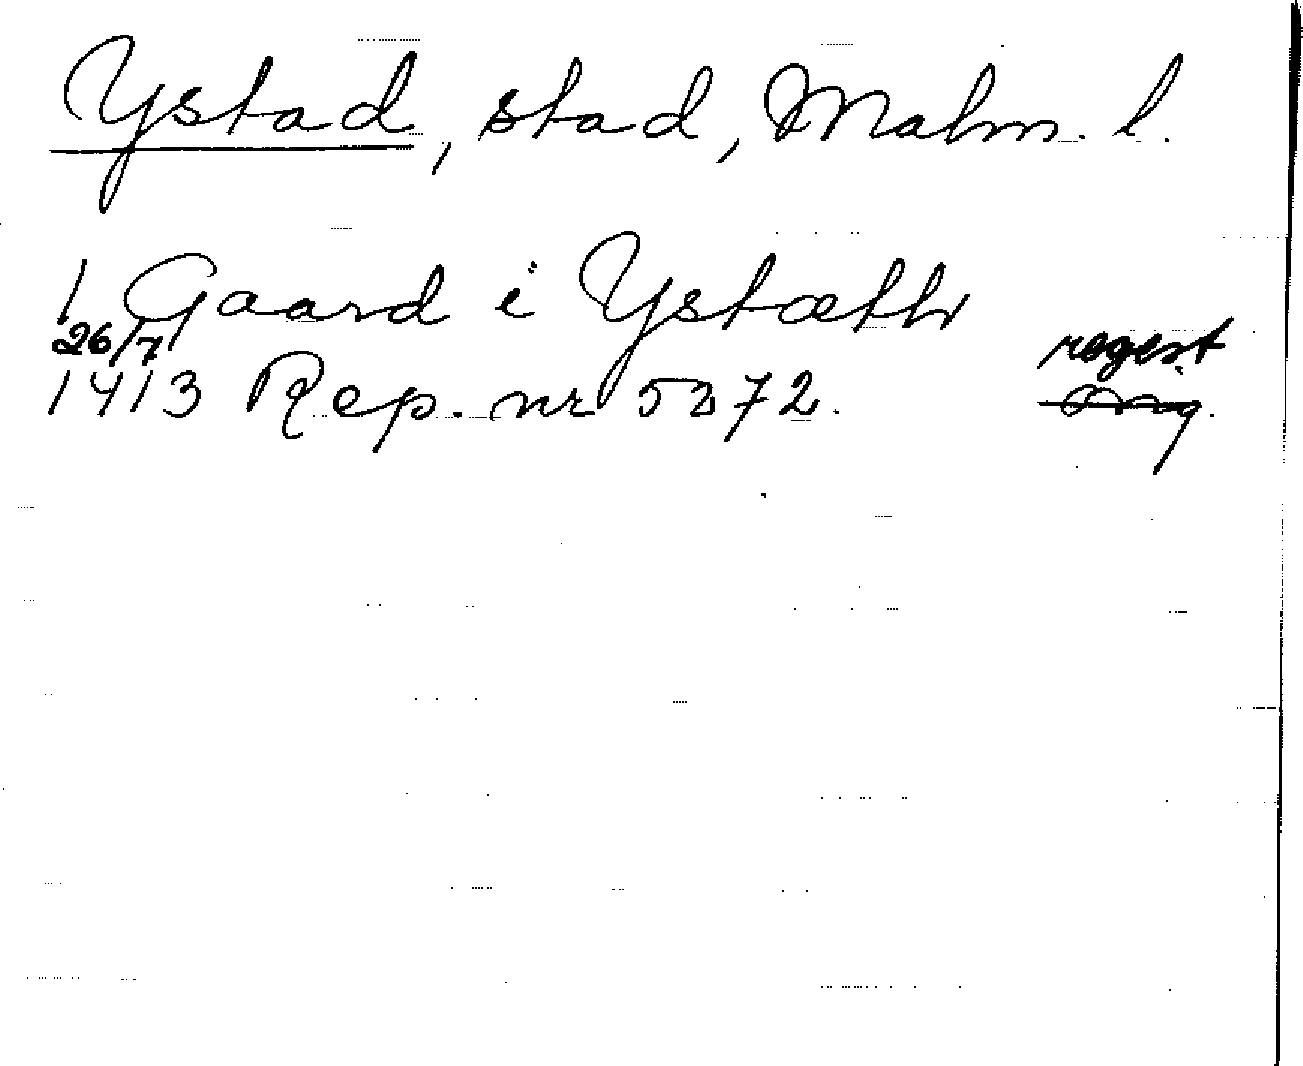 Ystad, stad, Malm. l.
1 Gaard i Ystæthe
26/7
1413 Rep. nr 5272. regest